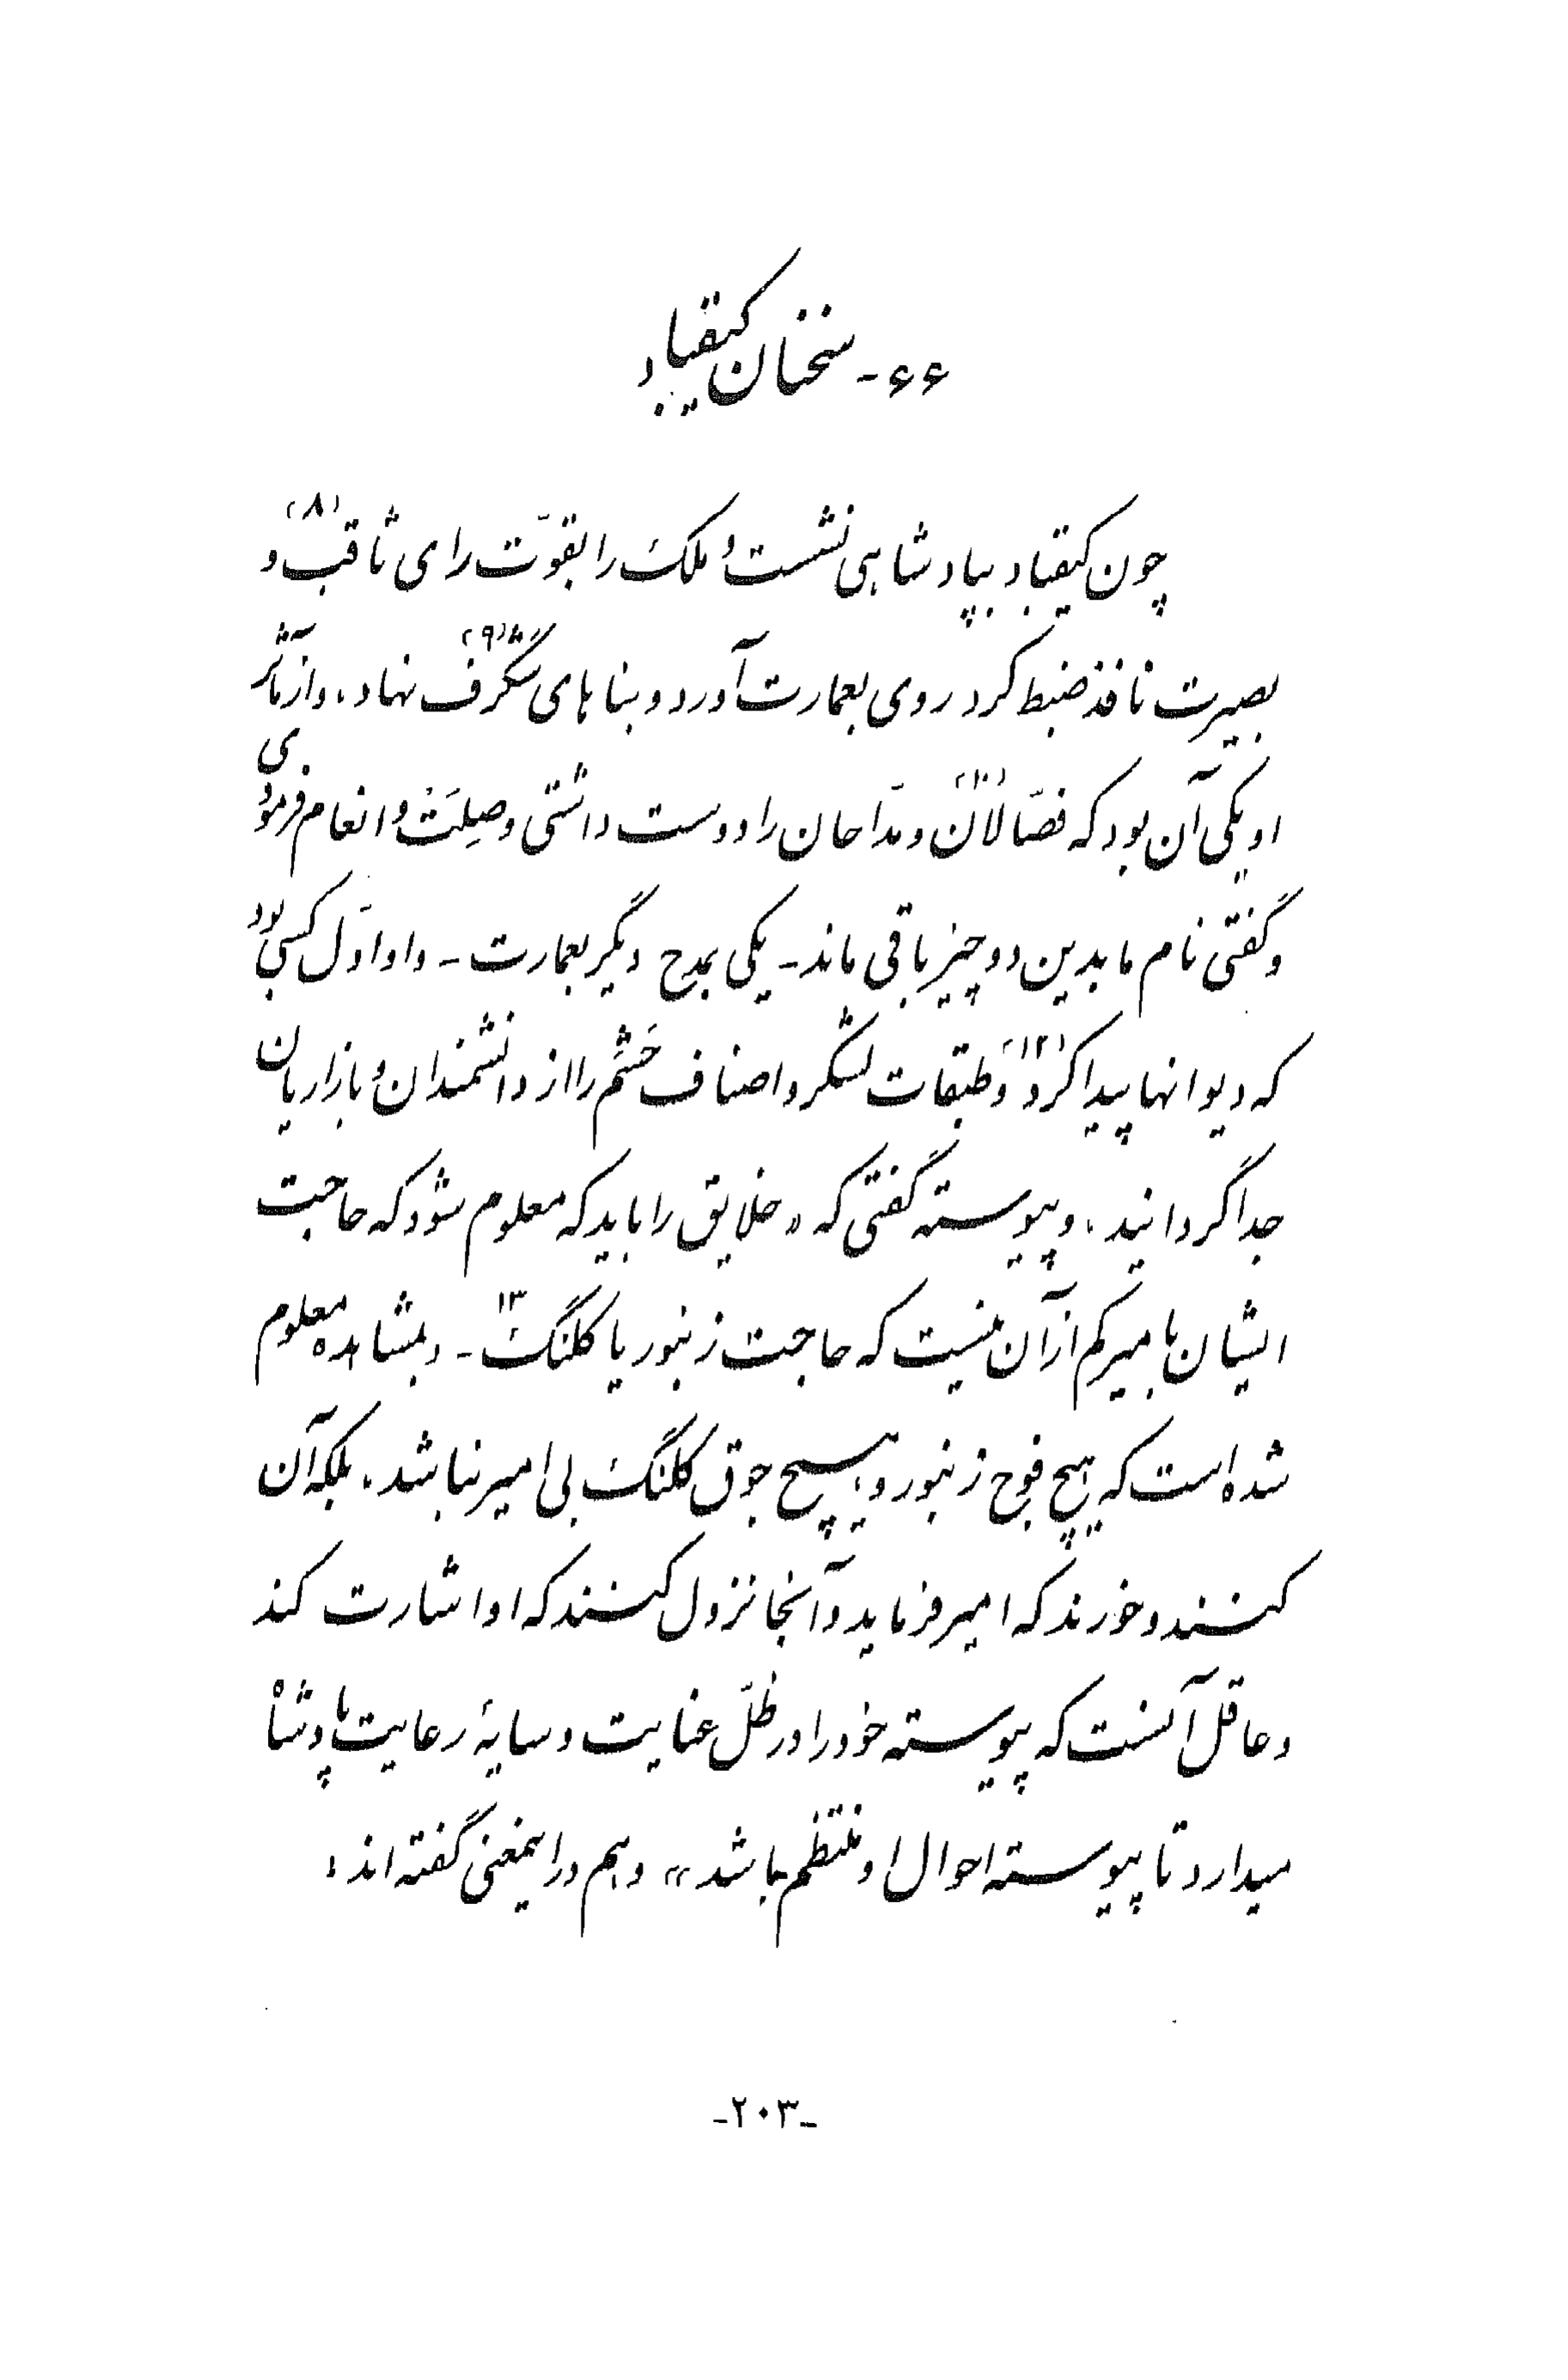 ۶۶ - سخنان کیقباد
چون کیقباد بپادشاهی نشست و ملک را بقوّت رای ثاقب (۸) و
بصیرت نافذ ضبط کرد روی بعمارت آورد و بناهای شگرف (۹) نهاد، و از مآثر
او یکی آن بود که فصّالان (۱۰) و مدّاحان را دوست داشتی و صِلَت و انعام فرمودی
و گفتی نام ما بدین دو چیز باقی ماند - یکی بمدح دیگر بعمارت - و او اوّل کسی بود
که دیوانها پیدا کرد (۱۲) و طبقات لشکر و اصناف حَشَم را از دانشمندان و بازاریان
جدا گردانید، و پیوسته گفتی که «خلایق را باید که معلوم شود که حاجت
ایشان بامیر کم از آن نیست که حاجت زنبور یا کلنگ ۱۳ - و بمشاهده معلوم
شده است که هیچ فوج زنبور و هیچ جوق کلنگ بی امیر نباشد، بلکه آن
کنند و خورند که امیر فرماید و آنجا نزول کنند که او اشارت کند
و عاقل آنست که پیوسته خود را در ظلّ عنایت و سایهٔ رعایت پادشاه
میدارد تا پیوسته احوال او منتظم باشد» و هم در اینمعنی گفته‌اند:
-۲۰۳-